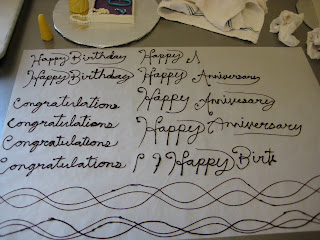 Happy Birthday
Happy Birthday
Congratulations
Congratulations
Congratulations
Congratulations
Happy A
Happy Anniversary
Happy Annivesary
Happy Anniversary
Happy Birth